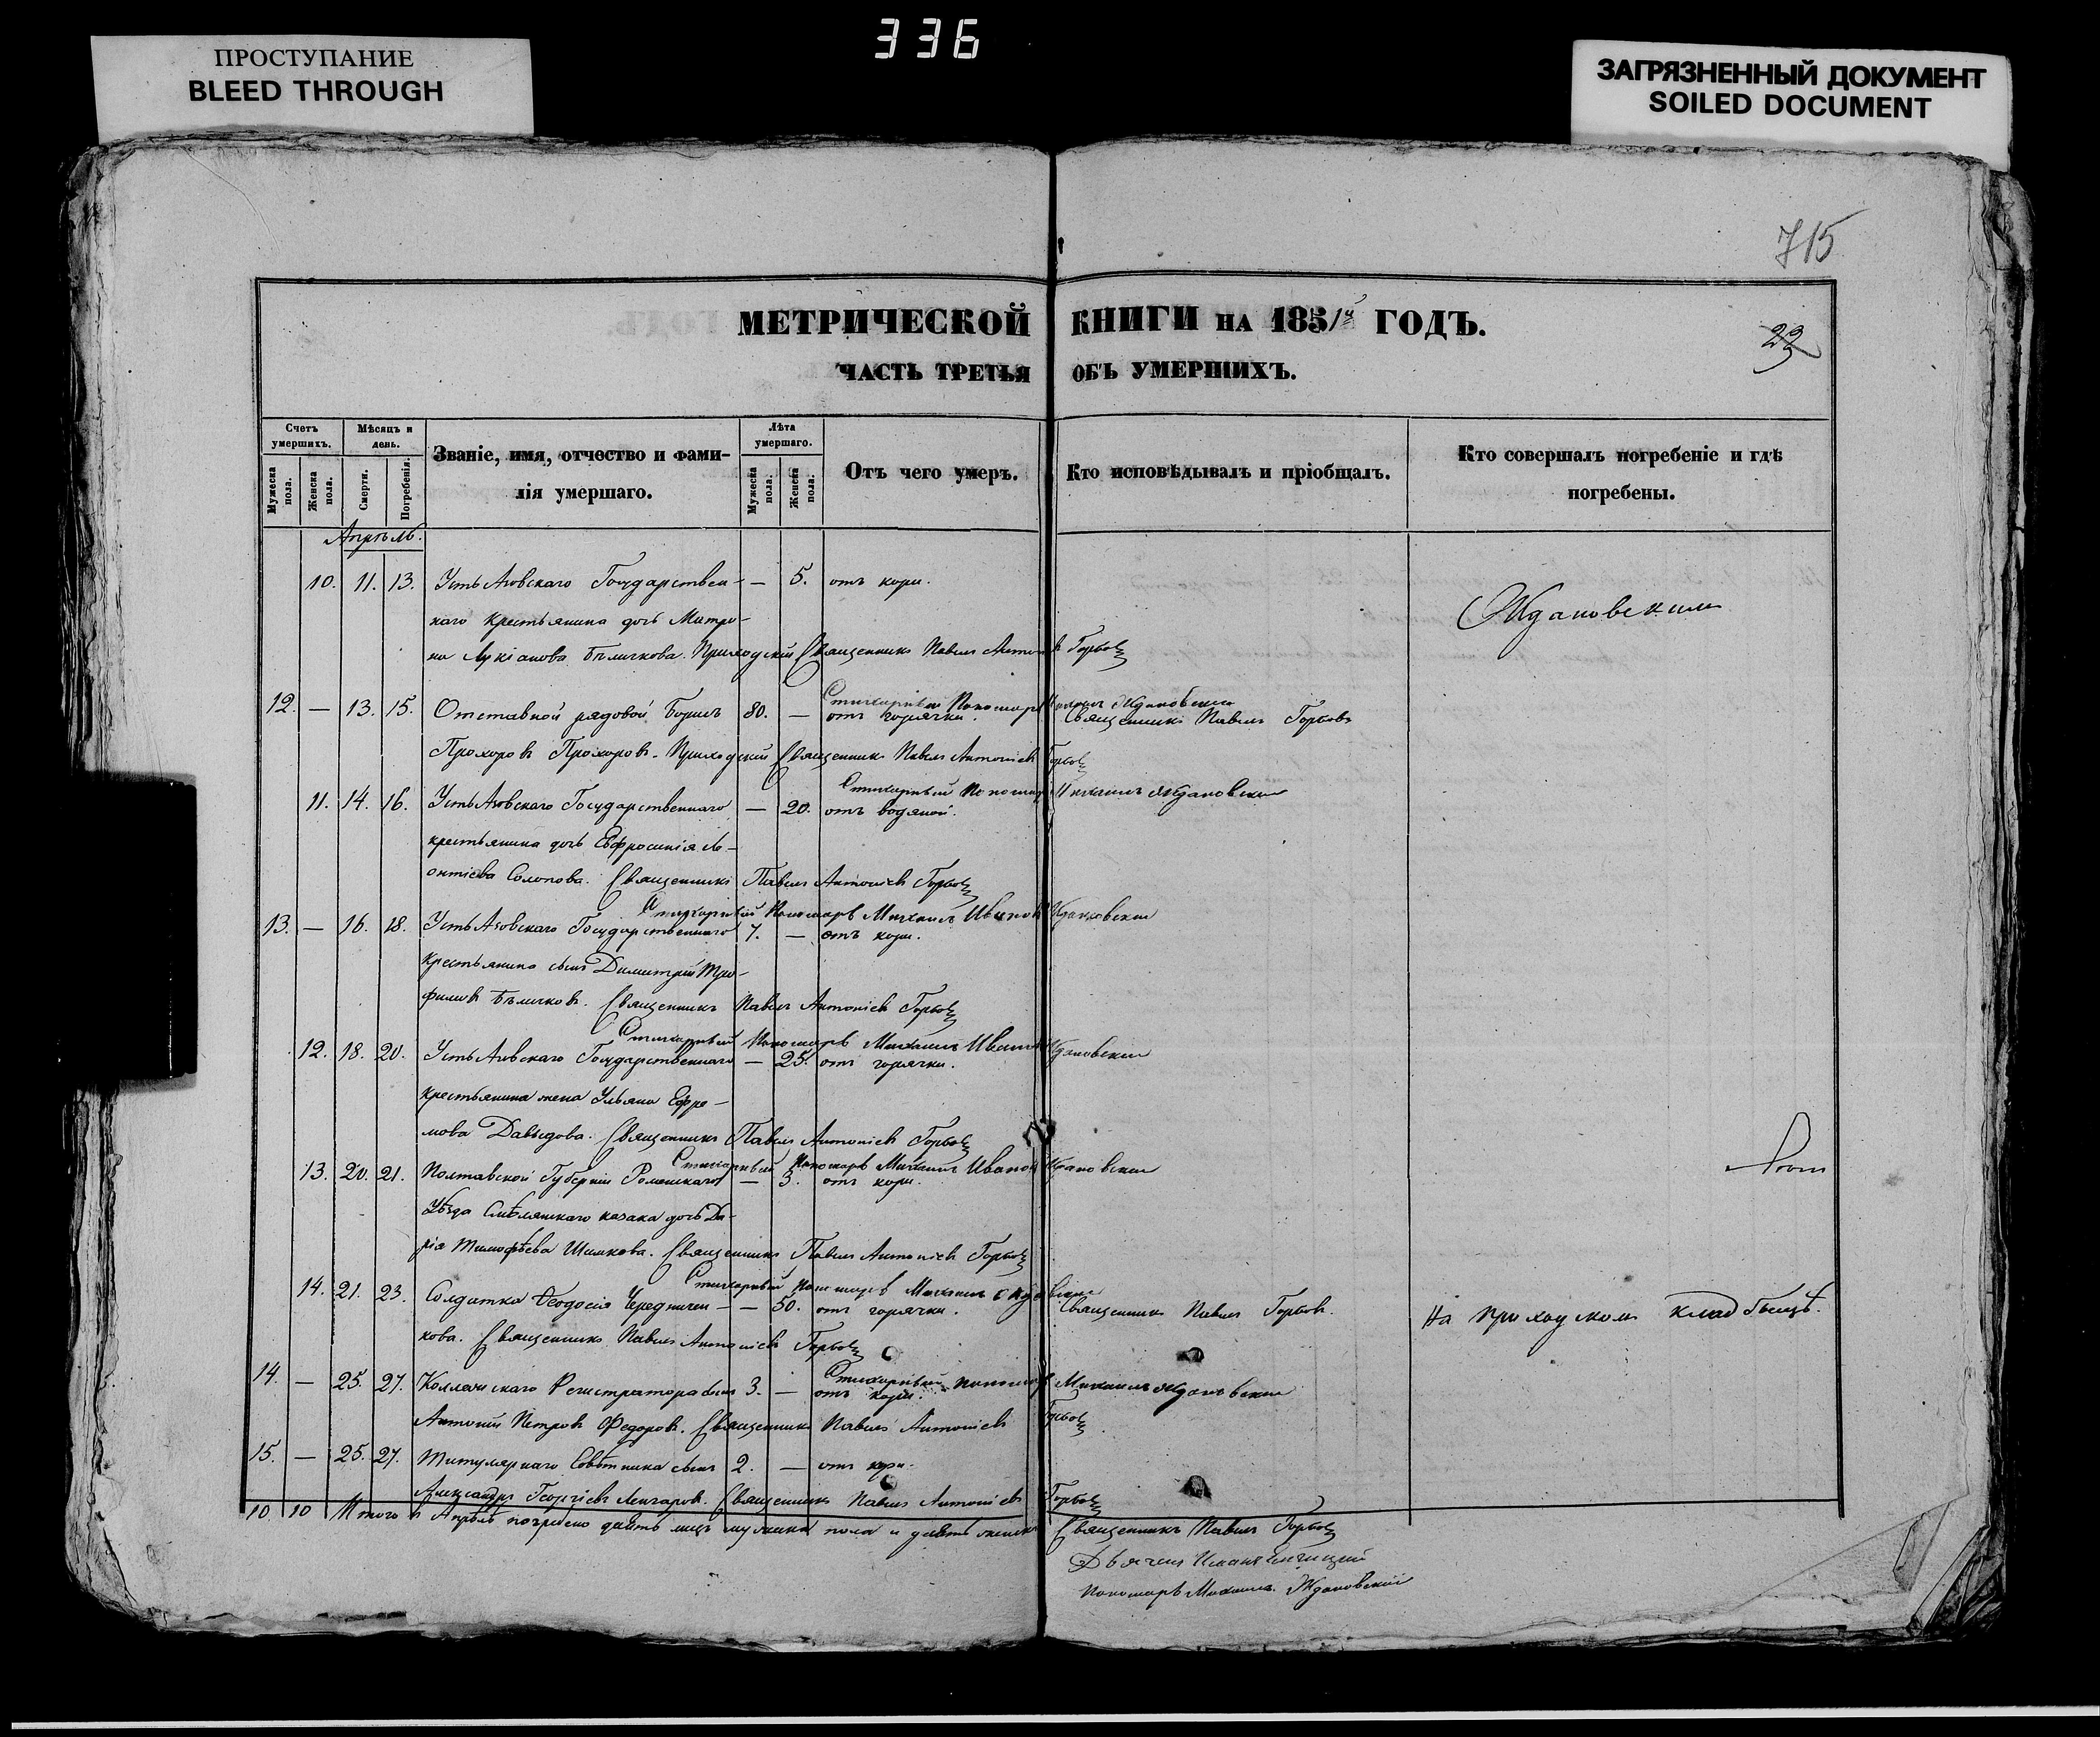 336
ПРОСТУПАНИЕ
BLEED THROUGH
ЗАГРЯЗНЕННЫЙ ДОКУМЕНТ
SOILED DOCUMENT
715
МЕТРИЧЕСКОЙ КНИГИ НА 1851й ГОДЪ.
23
ЧАСТЬ ТРЕТЬЯ ОБЪ УМЕРШИХЪ.
Счетъ умершихъ.
Мужеска пола.
Женска пола.
Мѣсяцъ и день.
Смерти.
Погребенія.
Званіе, имя, отчество и фами-
лія умершаго.
Лѣта умершаго.
Мужеска пола.
Женска пола.
Отъ чего умеръ.
Кто исповѣдывалъ и пріобщалъ.
Кто совершалъ погребеніе и гдѣ
погребены.
Апрѣль.
10. 11. 13. Усть Азовскаго Государствен- — 5. отъ кори.
Ждановскимъ
наго крестьянина дочь Матро-
на Лукіанова Бѣличкова. Приходскій Священникъ Павелъ Антоніевъ Горбовъ
Стихарный Пономарь Михаилъ Ждановскій
12. — 13. 15. Отставной рядовой Борисъ 80. — отъ горячки. Священникъ Павелъ Горбовъ
Прохоровъ Прохоровъ. Приходскій Священникъ Павелъ Антоніевъ Горбовъ
Стихарный Пономарь Михаилъ Ждановскій
11. 14. 16. Усть Азовскаго Государственнаго — 20. отъ водяной.
крестьянина дочь Евфросинія Ле-
онтіева Солопова. Священникъ Павелъ Антоніевъ Горбовъ
Стихарный Пономарь Михаилъ Ивановъ Ждановскій
13. — 16. 18. Усть Азовскаго Государственнаго 7. — отъ кори.
крестьянина сынъ Димитрій Тро-
фимовъ Бѣличковъ. Священникъ Павелъ Антоніевъ Горбовъ
Стихарный Пономарь Михаилъ Ивановъ Ждановскій
12. 18. 20. Усть Азовскаго Государственнаго — 25. отъ горячки.
крестьянина жена Ульяна Ефре-
мова Давыдова. Священникъ Павелъ Антоніевъ Горбовъ
Стихарный Пономарь Михаилъ Ивановъ Ждановскій
13. 20. 21. Полтавской Губерніи Роменскаго — 3. отъ кори.
Уѣзда Смѣлянскаго казака дочь Да-
рія Тимофѣева Шимкова. Священникъ Павелъ Антоніевъ Горбовъ
Стихарный Пономарь Михаилъ Ждановскій
14. 21. 23. Солдатка Ѳеодосія Чередничен- — 50. отъ горячки. Священникъ Павелъ Горбовъ. На приходскомъ кладбищѣ.
кова. Священникъ Павелъ Антоніевъ Горбовъ
Стихарный Пономарь Михаилъ Ждановскій
14. — 25. 27. Коллежскаго Регистратора сынъ 3. — отъ кори.
Антоній Петровъ Федоровъ. Священникъ Павелъ Антоніевъ Горбовъ
15. — 25. 27. Титулярнаго Совѣтника сынъ 2. — отъ кори.
Александръ Георгіевъ. Священникъ Павелъ Антоніевъ Горбовъ
10 10 Итого в Апрѣлѣ погребено лицъ мужеска пола и женска
Священникъ Павелъ Горбовъ
Дьячекъ
Пономарь Михаилъ Ждановскій